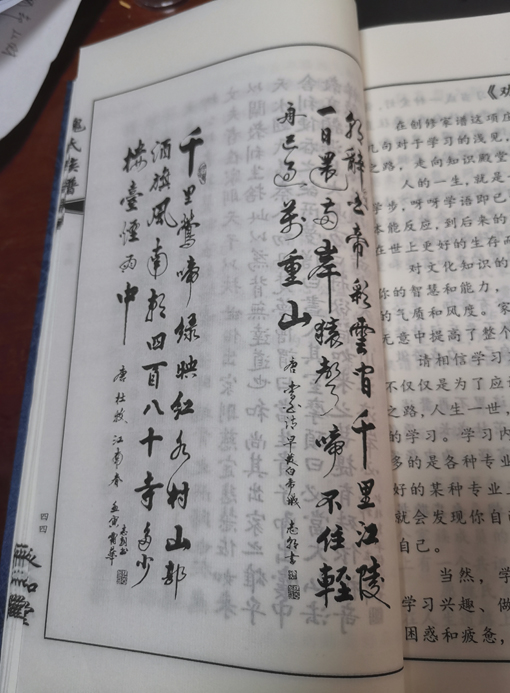 《劝
在创修家谱这项
向对于学习的浅见，
之路，走向知识殿堂
人的一生，就是
学步，呀呀学语即已
本能反应，到后来的
在世上更好的生存而
对文化知识的
你的智慧和能力，
的气质和风度。家
无意中提高了整个
请相信学习
不仅仅是为了应
之路，人生一世，
的学习。学习内
多的是各种专业
好的某种专业
就会发现你自
自己。
当然，学
学习兴趣、做
困惑和疲惫，
朝辞白帝彩雲间千里江陵
一日還两岸猿声啼不住輕
舟已过萬重山
唐 李白诗 早發白帝城
千里鶯啼绿映红水村山郭
酒旗风南朝四百八十寺多少
楼臺煙雨中
唐 杜牧 江南春
氏族譜
四四